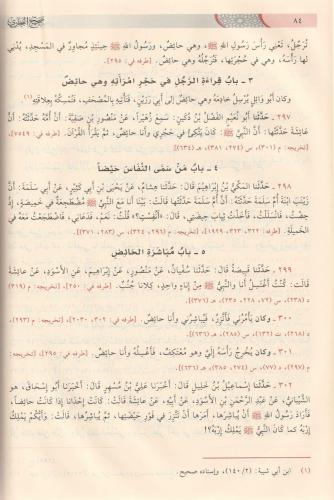 ٨٤
صحيح البخاري
تُرَجِّلُ، تَعْنِي رَأْسَ رَسُولِ اللهِ ﷺ، وهي حائِضٌ، ورسولُ اللهِ ﷺ حينئذٍ مُجاوِرٌ في المَسْجِدِ، يُدْنِي لها
رَأْسَهُ، وهي في حُجْرَتِها، فَتُرَجِّلُهُ وهي حائِضٌ. [طرفه في: ٢٩٥].
٣ - بابُ قِراءَةِ الرَّجُلِ في حَجْرِ امْرَأَتِهِ وهي حائِضٌ
وكان أبو وائِلٍ يُرْسِلُ خادِمَهُ وهي حائِضٌ إلى أبي رَزِينٍ، فَتَأْتِيهِ بِالمُصْحَفِ، فَتُمْسِكُهُ بِعِلاقَتِهِ (١).
٢٩٧ - حَدَّثَنا أبو نُعَيْمٍ الفَضْلُ بْنُ دُكَيْنٍ: سَمِعَ زُهَيْراً، عَنْ مَنْصُورِ بْنِ صَفِيَّةَ: أَنَّ أُمَّهُ حَدَّثَتْهُ: أَنَّ
عائِشَةَ حَدَّثَتْها: أَنَّ النَّبِيَّ ﷺ كانَ يَتَّكِئُ في حَجْرِي وأنا حائِضٌ، ثُمَّ يَقْرَأُ القُرْآنَ. [طرفه في: ٧٥٤٩]
[تخريجه: م (٣٠١)، س (٢٧٤، ٣٨١)، هـ (٦٣٤)]
٤ - بابُ مَنْ سَمَّى النِّفاسَ حَيْضاً
٢٩٨ - حَدَّثَنا المَكِّيُّ بْنُ إِبْراهِيمَ قالَ: حَدَّثَنا هِشامٌ، عَنْ يَحْيَى بْنِ أبي كَثِيرٍ، عَنْ أبي سَلَمَةَ: أَنَّ
زَيْنَبَ ابْنَةَ أُمِّ سَلَمَةَ حَدَّثَتْهُ: أَنَّ أُمَّ سَلَمَةَ حَدَّثَتْها قالَتْ: بَيْنا أنا مَعَ النَّبِيِّ ﷺ مُضْطَجِعَةٌ في خَمِيصَةٍ، إِذْ
حِضْتُ، فانْسَلَلْتُ، فَأَخَذْتُ ثِيابَ حِيضَتِي، قال: «أَنُفِسْتِ؟» قُلْتُ: نَعَمْ، فَدَعانِي، فاضْطَجَعْتُ مَعَهُ في
الخَمِيلَةِ. [طرفه: ٣٢٢، ٣٢٣، ١٩٢٩] [تخريجه: م (٢٩٦)، س (٢٨٣، ٣٧١)].
٥ - بابُ مُباشَرَةِ الحائِضِ
٢٩٩ - حَدَّثَنا قَبِيصَةُ قالَ: حَدَّثَنا سُفْيانُ، عَنْ مَنْصُورٍ، عَنْ إِبْراهِيمَ، عَنِ الأَسْوَدِ، عَنْ عائِشَةَ
قالَتْ: كُنْتُ أَغْتَسِلُ أنا والنَّبِيُّ ﷺ مِنْ إِناءٍ واحِدٍ، كِلانا جُنُبٌ. [طرفه في: ٢٥٠]، [تخريجه: م (٣١٩)
٣٠٠ - وكان يَأْمُرُنِي فَأَتَّزِرُ، فَيُباشِرُنِي وأنا حائِضٌ. [طرفه في: ٣٠٢، ٢٠٣٠]، [تخريجه: م (٢٩٣)،
٣٠١ - وكان يُخْرِجُ رَأْسَهُ إِلَيَّ وهو مُعْتَكِفٌ، فَأَغْسِلُهُ وأنا حائِضٌ. [طرفه في: ٢٩٥]، [تخريجه:
٣٠٢ - حَدَّثَنا إِسْماعِيلُ بْنُ خَلِيلٍ قالَ: أَخْبَرَنا عَلِيُّ بْنُ مُسْهِرٍ قالَ: أَخْبَرَنا أبو إِسْحاقَ، هو
الشَّيْبانِيُّ، عَنْ عَبْدِ الرَّحْمنِ بْنِ الأَسْوَدِ، عَنْ أَبِيهِ، عَنْ عائِشَةَ قالَتْ: كانَتْ إِحْدانا إِذا كانَتْ حائِضاً،
فَأَرادَ رَسُولُ اللهِ ﷺ أَنْ يُباشِرَها، أَمَرَها أَنْ تَتَّزِرَ في فَوْرِ حَيْضَتِها، ثُمَّ يُباشِرُها. قالَتْ: وأَيُّكُمْ يَمْلِكُ
إِرْبَهُ كما كان النَّبِيُّ ﷺ يَمْلِكُ إِرْبَهُ؟
(١) ابن أبي شيبة: (١٤٠/٢)، وإسناده صحيح.